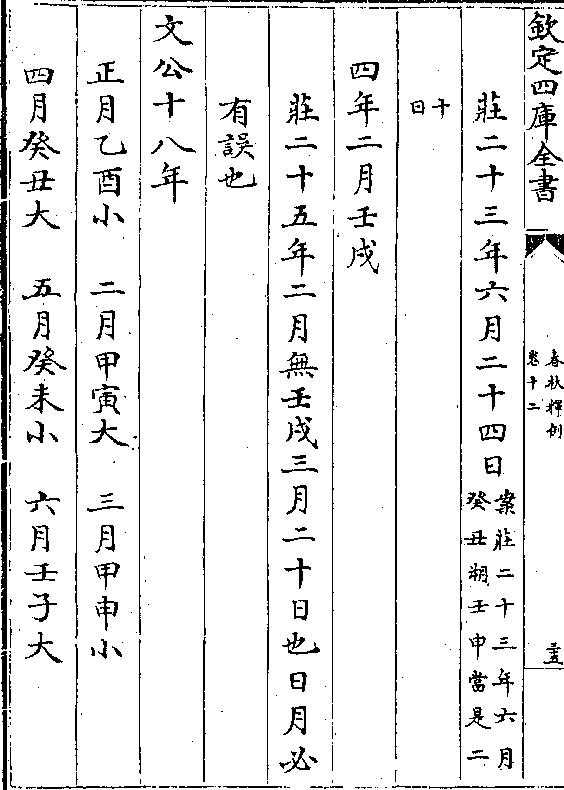 欽定四庫全書
春秋釋例
卷十二
三五
莊二十三年六月二十四日案莊二十三年六月
癸丑朔壬申當是二
十
日
四年二月壬戌
莊二十五年二月無壬戌三月二十日也日月必
有誤也
文公十八年
正月乙酉小 二月甲寅大 三月甲申小
四月癸丑大 五月癸未小 六月壬子大